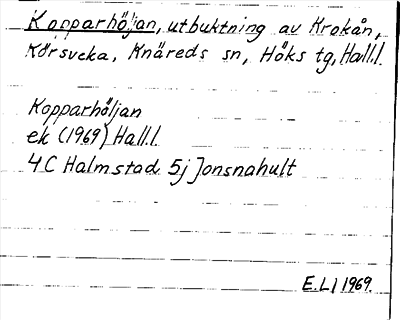 Kopparhöljan, utbuktning av Krokån,
Körsveka, Knäreds sn, Höks tg, Hall.l.
Kopparhöljan
ek (1969) Hall.l.
4C Halmstad 5j Jonsnahult
E.L) 1969.